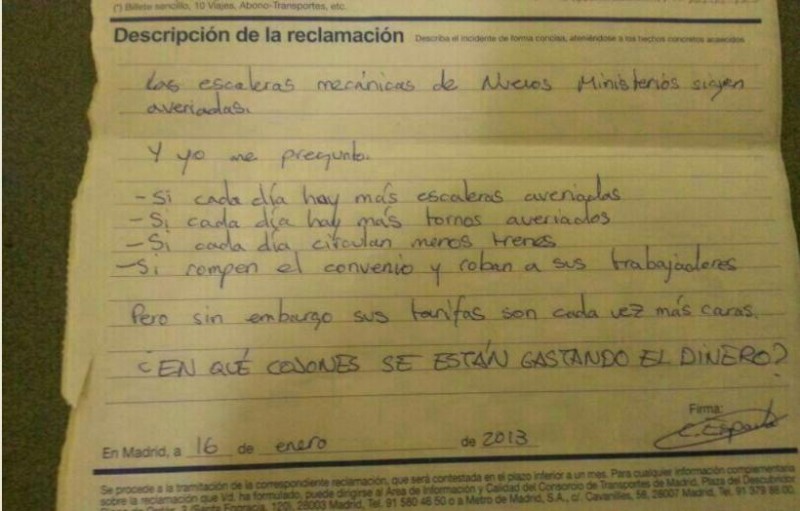 (*) Billete sencillo, 10 Viajes, Abono-Transportes, etc.
Descripción de la reclamación Describa el incidente de forma concisa, ateniéndose a los hechos concretos acaecidos
Las escaleras mecánicas de Nuevos Ministerios siguen
averiadas.
Y yo me pregunto.
- Si cada día hay más escaleras averiadas
- Si cada día hay más tornos averiados
- Si cada día circulan menos trenes
- Si rompen el convenio y roban a sus trabajadores
Pero sin embargo sus tarifas son cada vez más caras.
¿EN QUÉ COJONES SE ESTÁN GASTANDO EL DINERO?
Firma:
C. España
En Madrid, a 16 de enero de 2013
Se procede a la tramitación de la correspondiente reclamación, que será contestada en el plazo inferior a un mes. Para cualquier información complementaria
sobre la reclamación que Vd. ha formulado, puede dirigirse al Área de Información y Calidad del Consorcio de Transportes de Madrid, Plaza del Descubridor
28003 Madrid, Tel. 91 580 46 50 o a Metro de Madrid, S.A., c/. Cavanilles, 58, 28007 Madrid, Tel. 91 379 88 00.